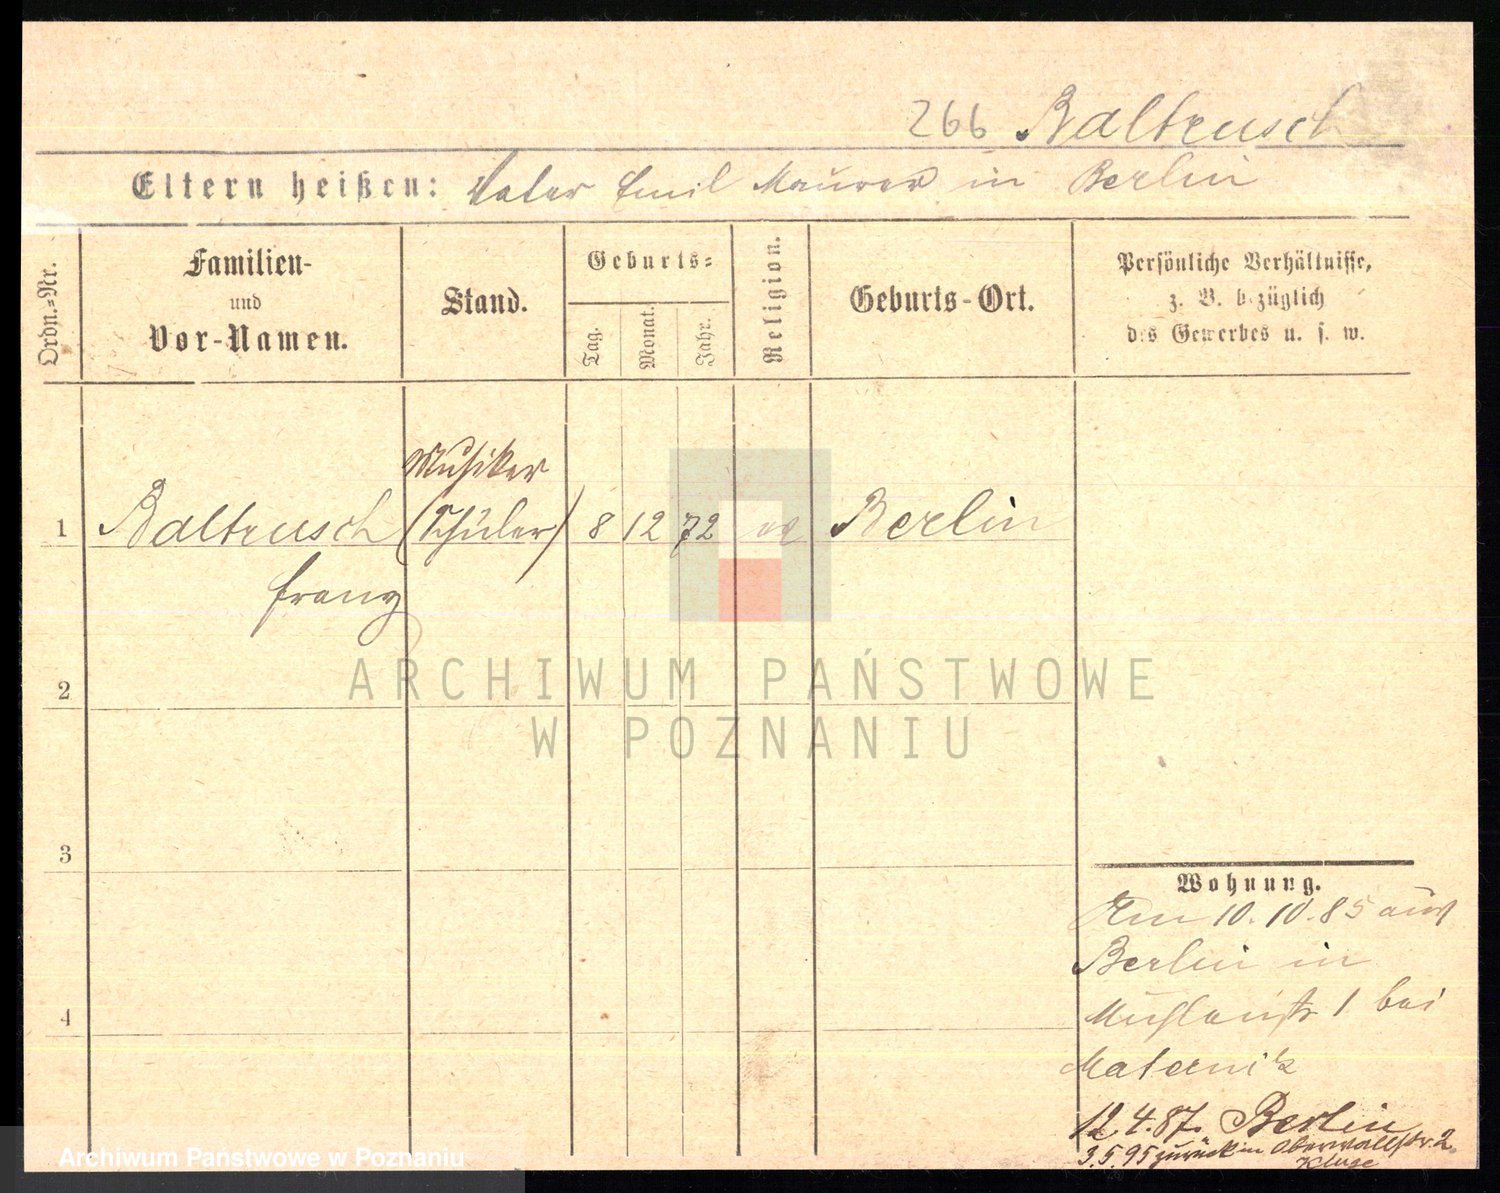 266 Baltrusch
Eltern heißen: Vater Emil Maurer in Berlin
Ordn.-Nr.
Familien-
und
Vor-Namen.
Stand.
Geburts-
Tag.
Monat.
Jahr.
Religion.
Geburts-Ort.
Persönliche Verhältnisse,
z. B. bezüglich
des Gewerbes u. s. w.
Musiker
1 Baltrusch (Schüler) 8 12 72 Berlin
Franz
2
3
4
ARCHIWUM PAŃSTWOWE
W POZNANIU
Wohnung.
Am 10.10.85 aus
Berlin in
Mühlenstr 1 bei
Maternik
12.4.87. Berlin
3.5.95 zurück in Oberwallstr. 2.
Kluge
Archiwum Państwowe w Poznaniu